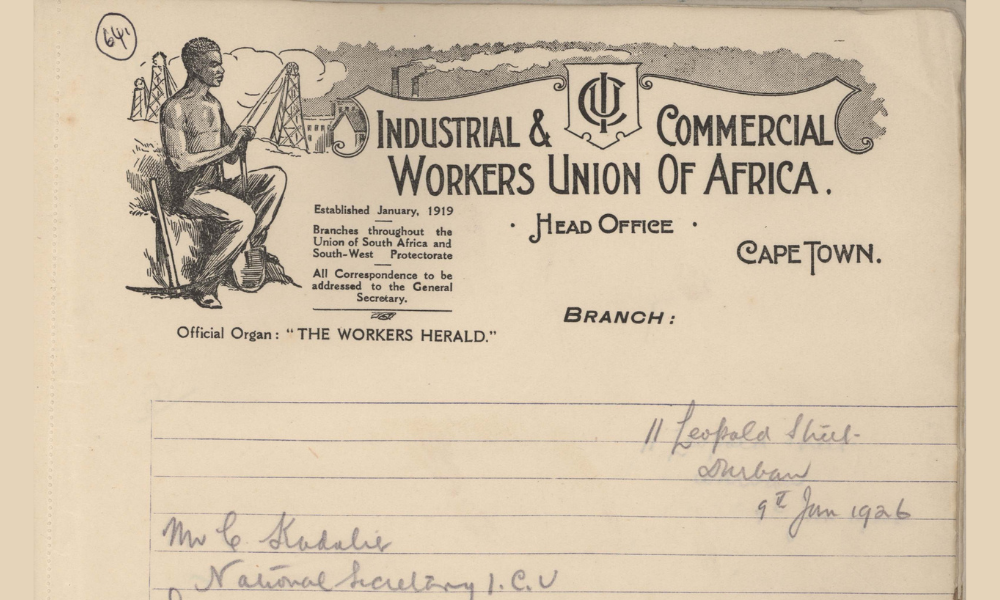 641
ICU
INDUSTRIAL & COMMERCIAL
WORKERS UNION OF AFRICA.
Established January, 1919
Branches throughout the
Union of South Africa and
South-West Protectorate
All Correspondence to be
addressed to the General
Secretary.
· HEAD OFFICE ·
CAPE TOWN.
BRANCH:
Official Organ: "THE WORKERS HERALD."
11 Leopold Street
Durban
9th Jan 1926
Mr C Kadalie
National Secretary I.C.U